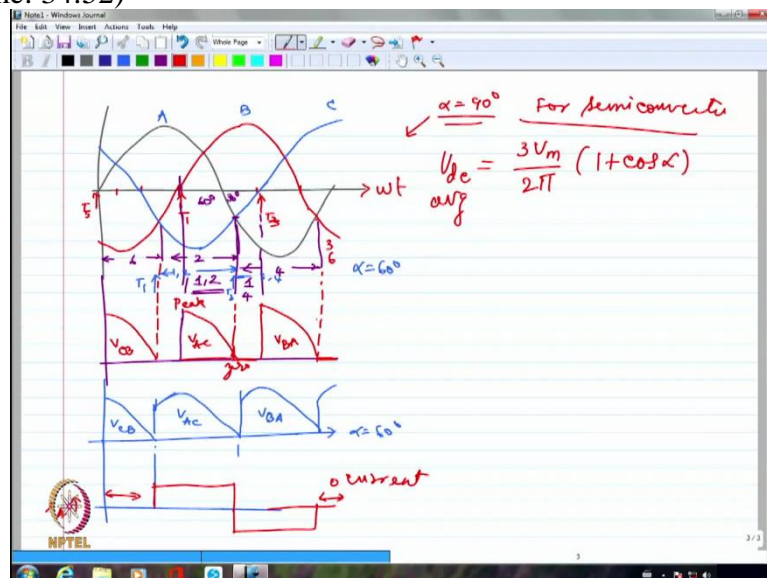 Note1 - Windows Journal
File Edit View Insert Actions Tools Help
Whole Page
A B C
α = 90° For semiconverter
V_dc avg = 3Vm/2π (1+cosα)
ωt
60° 30°
T1
3
6
2
4
α=60°
1,2
1
4
T1
Peak
V_CB V_AC V_BA
zero
V_CB V_AC V_BA
α=60°
0 current
NPTEL
3/3
3